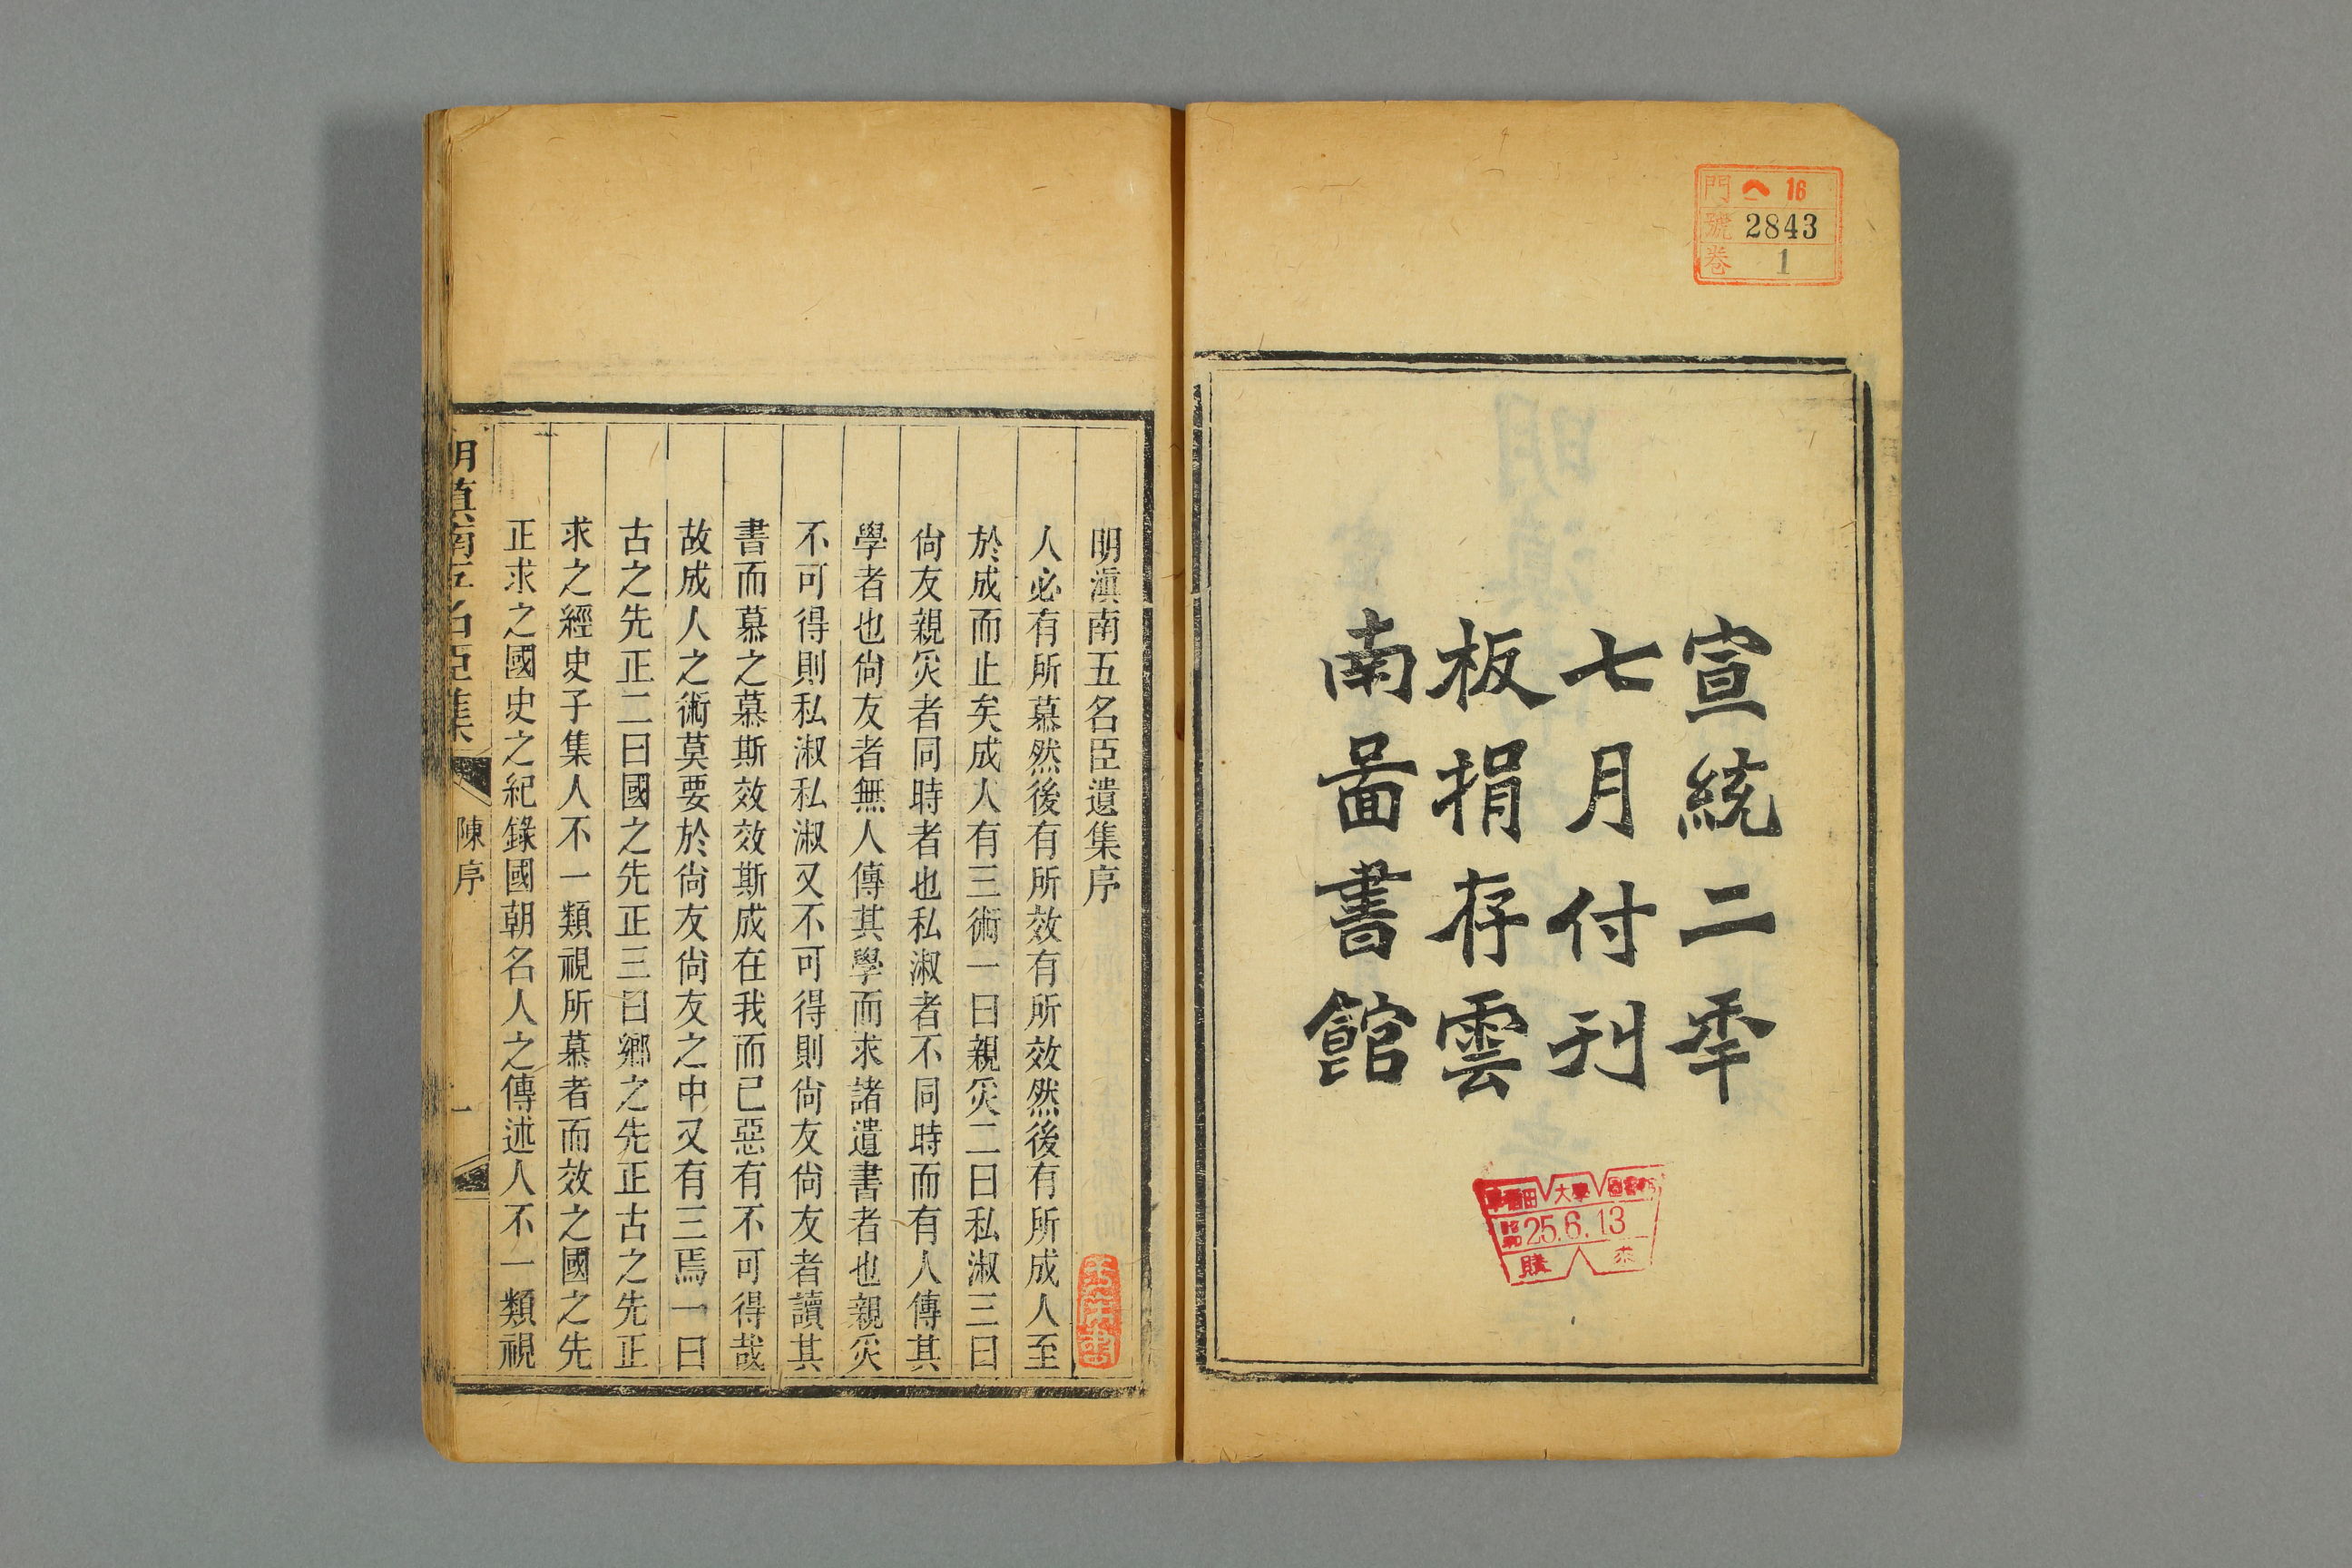 門 へ 16
號 2843
卷 1
宣統二秊
七月付刊
板捐存雲
南啚書館
大學
25.6.13
購
明滇南五名臣遺集序
人必有所慕然後有所效有所效然後有所成人至
於成而止矣成人有三術一曰親炙二曰私淑三曰
尙友親炙者同時者也私淑者不同時而有人傳其
學者也尙友者無人傳其學而求諸遺書者也親炙
不可得則私淑私淑又不可得則尙友尙友者讀其
書而慕之慕斯效效斯成在我而已惡有不可得哉
故成人之術莫要於尙友尙友之中又有三焉一曰
古之先正二曰國之先正三曰鄉之先正古之先正
求之經史子集人不一類視所慕者而效之國之先
正求之國史之紀錄國朝名人之傳述人不一類視
明滇南五名臣集
陳序
一